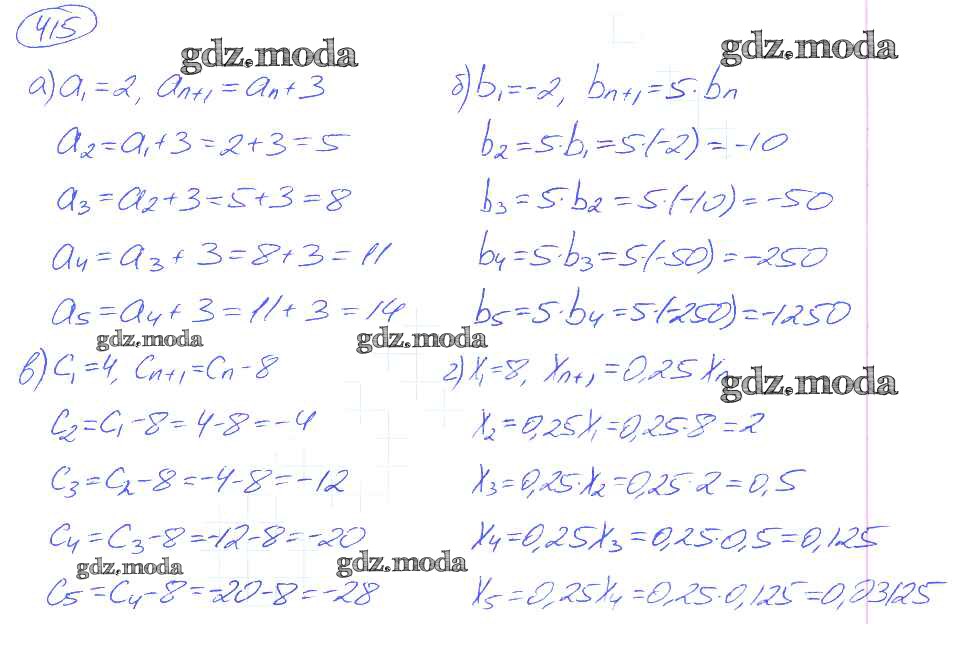 415
gdz.moda
gdz.moda
а) a₁=2, aₙ₊₁=aₙ+3
a₂=a₁+3=2+3=5
a₃=a₂+3=5+3=8
a₄=a₃+3=8+3=11
a₅=a₄+3=11+3=14
б) b₁=-2, bₙ₊₁=5·bₙ
b₂=5·b₁=5·(-2)=-10
b₃=5·b₂=5·(-10)=-50
b₄=5·b₃=5(-50)=-250
b₅=5·b₄=5·(-250)=-1250
gdz.moda
gdz.moda
в) c₁=4, cₙ₊₁=cₙ-8
c₂=c₁-8=4-8=-4
c₃=c₂-8=-4-8=-12
c₄=c₃-8=-12-8=-20
c₅=c₄-8=-20-8=-28
г) x₁=8, xₙ₊₁=0,25xₙ
gdz.moda
x₂=0,25x₁=0,25·8=2
x₃=0,25·x₂=0,25·2=0,5
x₄=0,25x₃=0,25·0,5=0,125
x₅=0,25x₄=0,25·0,125=0,03125
gdz.moda
gdz.moda